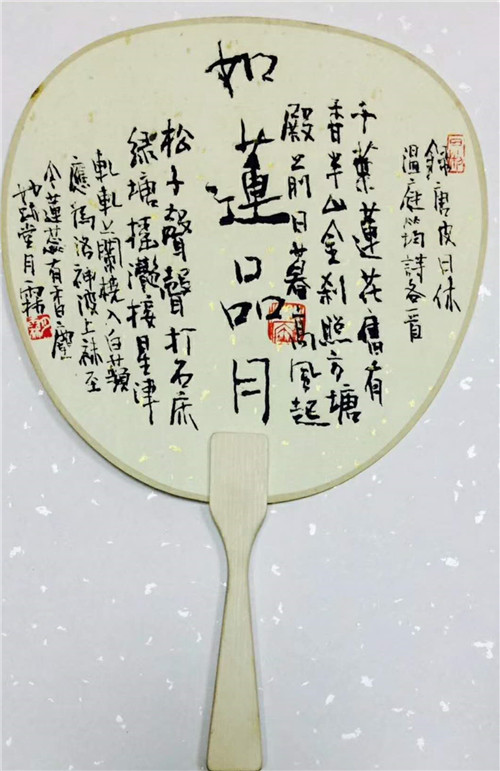 錄唐皮日休
溫庭筠詩各一首
千葉蓮花舊有
香半山金剎照方塘
殿前日暮高風起
如蓮品月
松子聲聲打石床
綠塘搖灩接星津
軋軋蘭橈入白蘋
應為洛神波上襪至
今蓮蕊有香塵
堂月